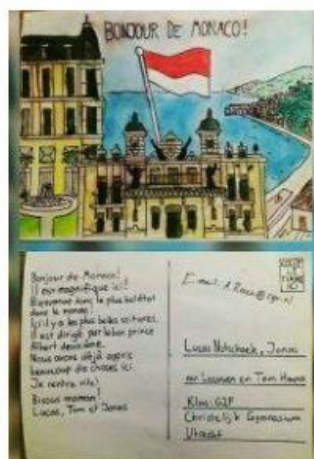 BONJOUR DE MONACO!
Bonjour de Monaco!
Il est magnifique ici!
Bienvenue dans le plus bel état
dans le monde!
Ici il y a les plus belles voitures.
Il est dirigé par le bon prince
Albert deuxième.
Nous avons déjà appris
beaucoup de choses ici
Je rentre vite!
Bisous maman!
Lucas, Tom et Jonas
E-mail:
Lucas Jonas
van Leeuwen en Tom
Klas: G2P
Christelijk Gymnasium
Utrecht